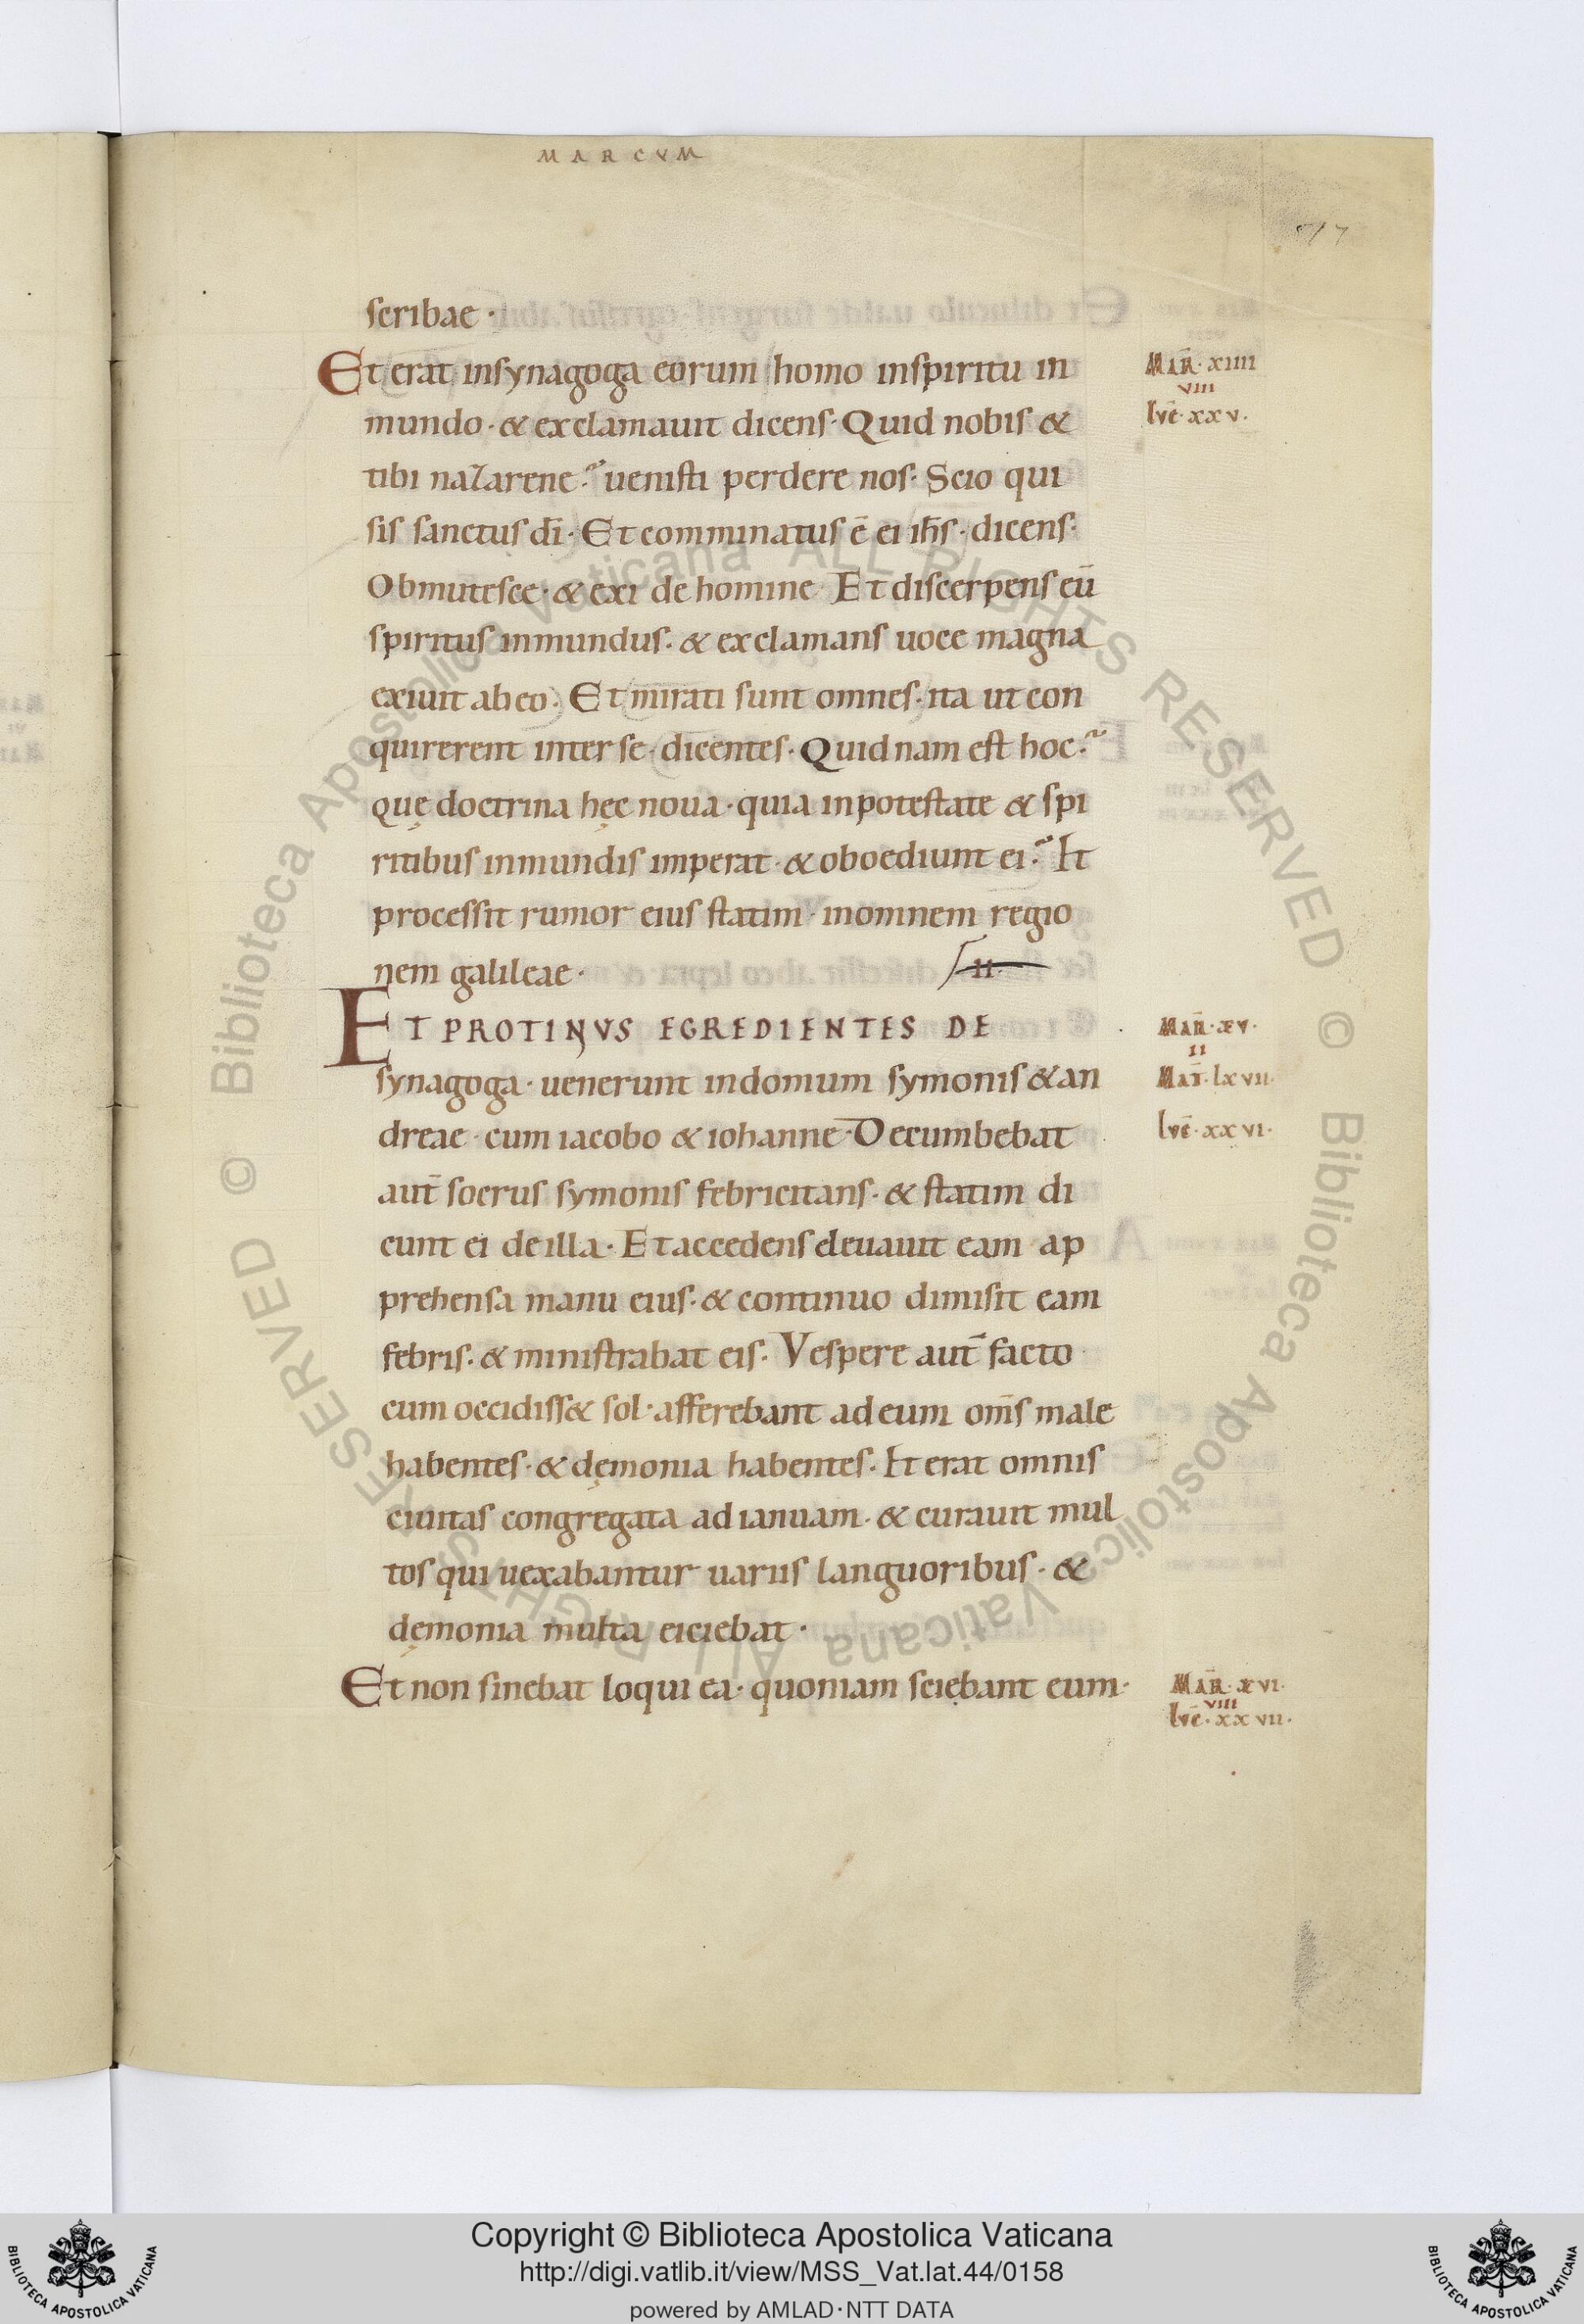 MARCVM
scribae·
Et erat insynagoga eorum homo inspiritu in
mundo·& exclamauit dicens·Quid nobis &
tibi nazarene? uenisti perdere nos·Scio qui
sis sanctus dī·Et comminatus ē ei ih̄s·dicens·
Obmutesce·& exi de homine·Et discerpens eū
spiritus inmundus·& exclamans uoce magna
exiuit ab eo·Et mirati sunt omnes·ita ut con
quirerent inter se·dicentes·Quidnam est hoc?
quę doctrina hęc noua·quia inpotestate & spi
ritibus inmundis imperat·& oboediunt ei? Et
processit rumor eius statim·inomnem regio
nem galileae·
II
ET PROTINVS EGREDIENTES DE
synagoga·uenerunt indomum symonis & an
dreae·cum iacobo & iohanne·Decumbebat
aut̄ socrus symonis febricitans·& statim di
cunt ei de illa·Et accedens eleuauit eam ap
prehensa manu eius·& continuo dimisit eam
febris·& ministrabat eis·Vespere aut̄ facto
cum occidiss& sol·afferebant ad eum om̄s male
habentes·& dęmonia habentes·Et erat omnis
ciuitas congregata ad ianuam·& curauit mul
tos qui uexabantur uariis languoribus·&
dęmonia multa eiciebat·
Et non sinebat loqui ea·quoniam sciebant eum·
MAR̄·XIIII
VIII
LVC̄·XXV·
MAR̄·XV·
II
MAT̄·LXVII·
LVC̄·XXVI·
MAR̄·XVI·
VIII
LVC̄·XXVII·
© Biblioteca Apostolica Vaticana ALL RIGHTS RESERVED © Biblioteca Apostolica Vaticana ALL RIGHTS RESERVED
Copyright © Biblioteca Apostolica Vaticana
http://digi.vatlib.it/view/MSS_Vat.lat.44/0158
powered by AMLAD·NTT DATA
BIBLIOTECA APOSTOLICA VATICANA
BIBLIOTECA APOSTOLICA VATICANA